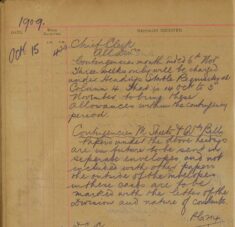 1909.
DATE
MESSAGES RECEIVED
Oct 15
Chief Clerk
All
Contingencies month
Three weeks only will be charged
under Headings Stable Requisites
Column 4 That is 15 Oct to 5
November, to bring these
allowances within the contingency
period.
Contingencies M. & Bills
Papers under the above headings
are in future to be sent in
separate envelopes and not
included with other papers
the outside of the envelopes
in these cases are to be
marked with the letter of the
Division and nature of contents.